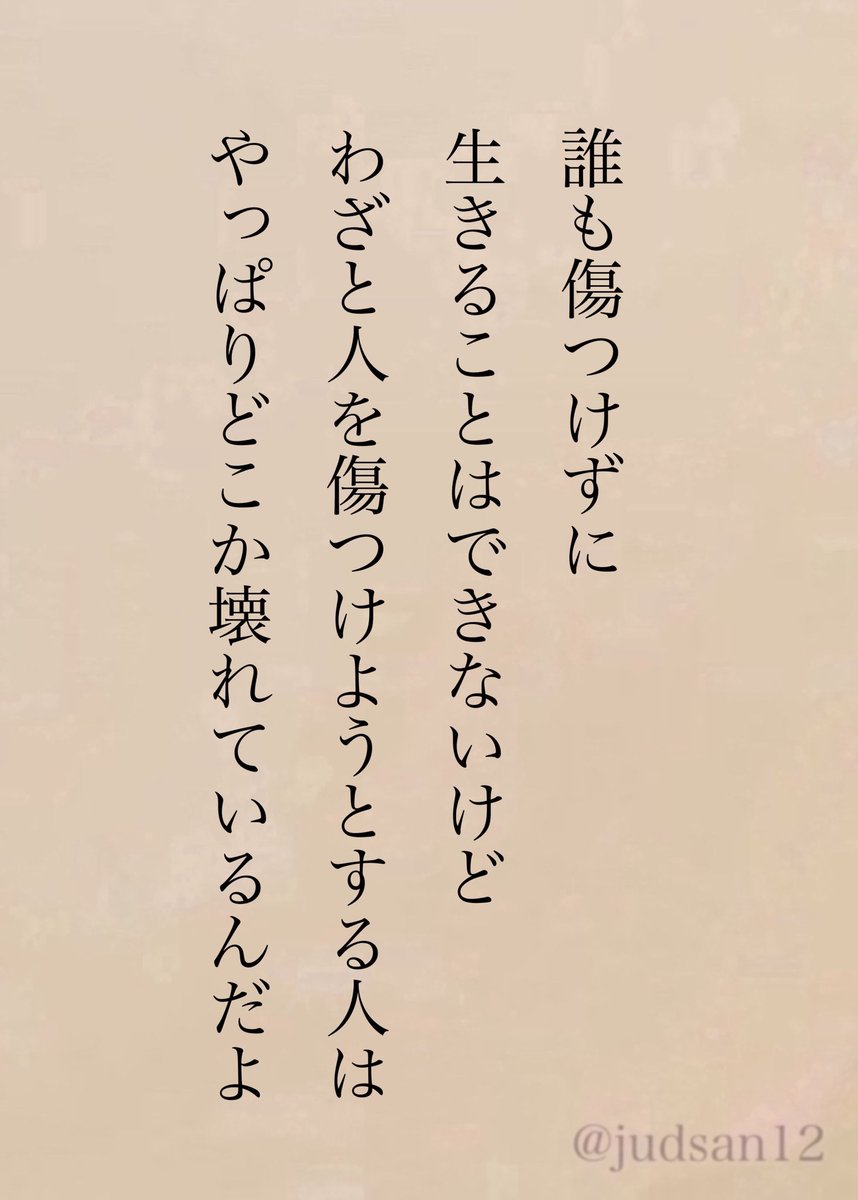 誰も傷つけずに
生きることはできないけど
わざと人を傷つけようとする人は
やっぱりどこか壊れているんだよ
@judsan12